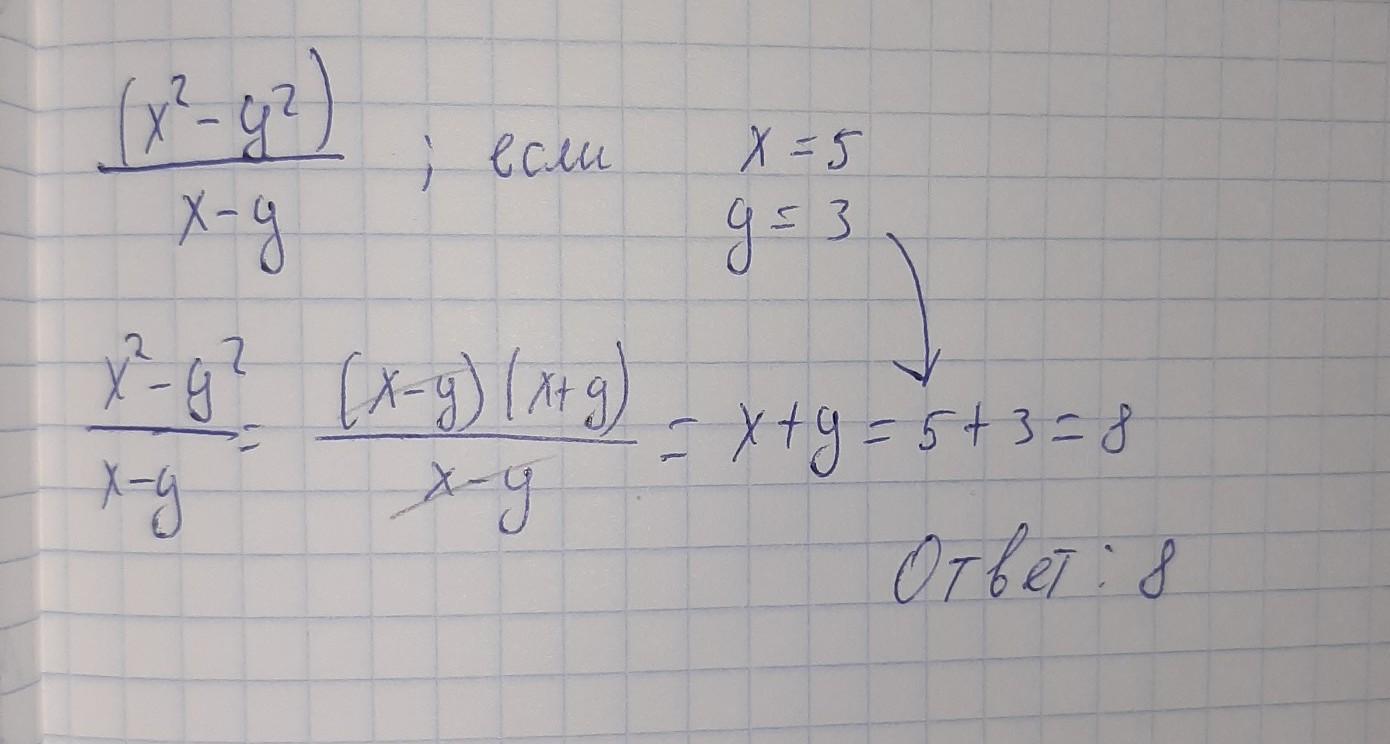 (x² - y²) / x - y ; если x = 5
y = 3
x² - y² / x - y = (x - y)(x + y) / x - y = x + y = 5 + 3 = 8
Ответ: 8